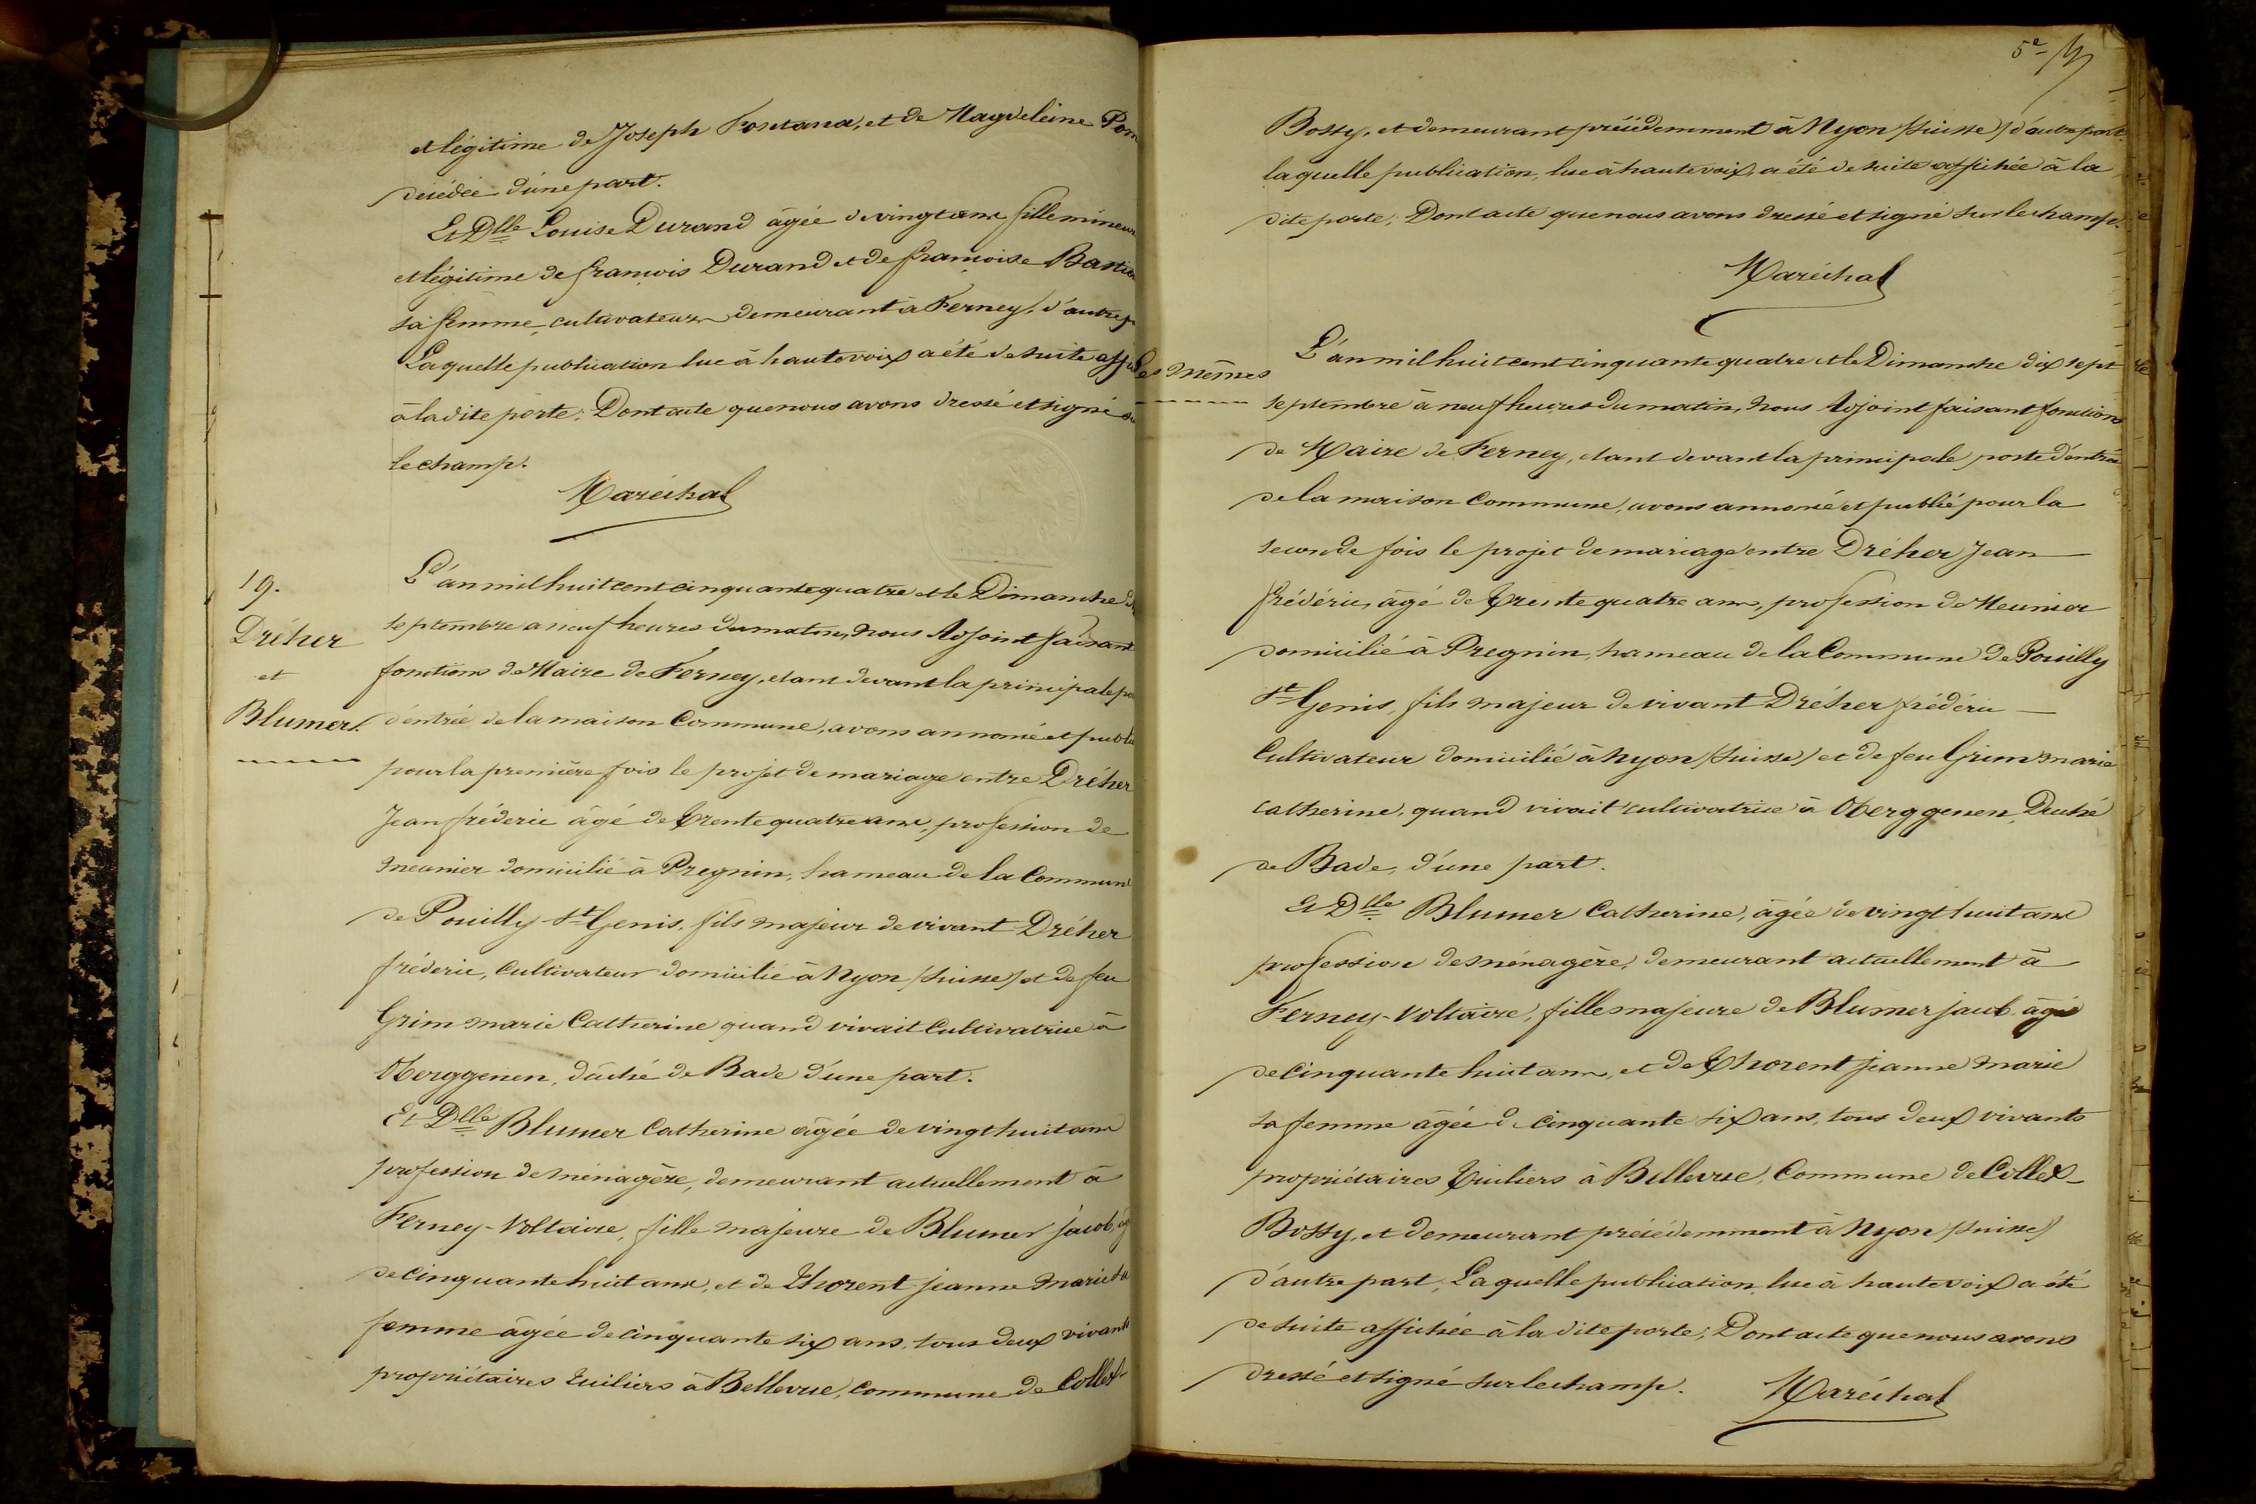 et légitime de Joseph Fontana, et de Magdeleine
décédée d'une part.
Et Dlle Louise Durand âgée de vingt ans fille mineure
et légitime de françois Durand et de françoise
sa femme, cultivateurs demeurant à Ferney, d'autre
Laquelle publication lue à haute voix a été de suite
à la dite porte; Dont acte que nous avons dressé et signé
le champ.
Maréchal
19.
Dréher
et
Blumer.
L'an mil huit cent cinquante quatre et le Dimanche
septembre à neuf heures du matin, nous Adjoint faisant
fonctions de Maire de Ferney, étant devant la principale
d'entrée de la maison Commune, avons annoncé et publié
pour la première fois le projet de mariage entre Dréher
Jean fréderic âgé de trente quatre ans, profession de
meunier domicilié à Pregnin, hameau de la Commune
de Pouilly-St Genis, fils majeur de vivant Dréher
fréderic, Cultivateur domicilié à Nyon (Suisse) et de feu
Grim marie Catherine quand vivait Cultivatrice à
Oberggenen, duché de Bade d'une part.
Et Dlle Blumer Catherine âgée de vingt huit ans
profession de ménagère, demeurant actuellement à
Ferney-Voltaire, fille majeure de Blumer jacob,
de cinquante huit ans, et de Thorent jeanne marie sa
femme âgée de cinquante six ans, tous deux vivants
propriétaires tuiliers à Bellevue, commune de Collex-
5e
Bossy, et demeurant précédemment à Nyon (Suisse) d'autre part
laquelle publication, lue à haute voix, a été de suite affichée à la
dite porte; Dont acte que nous avons dressé et signé sur le champ.
Maréchal
Les mêmes
L'an mil huit cent cinquante quatre et le Dimanche dix sept
septembre à neuf heures du matin, nous Adjoint faisant fonctions
de Maire de Ferney, étant devant la principale porte d'entrée
de la maison Commune, avons annoncé et publié pour la
seconde fois le projet de mariage entre Dréher Jean
frédéric, âgé de trente quatre ans, profession de Meunier
domicilié à Pregnin, hameau de la Commune de Pouilly
St Genis, fils majeur de vivant Dréher frédéric
Cultivateur domicilié à Nyon (Suisse) et de feu Grim marie
catherine, quand vivait cultivatrice à Oberggenen, Duché
de Bade, d'une part.
Et Dlle Blumer Catherine, âgée de vingt huit ans
profession de ménagère, demeurant actuellement à
Ferney-Voltaire, fille majeure de Blumer jacob âgé
de cinquante huit ans, et de Thorent jeanne marie
sa femme âgée de cinquante six ans, tous deux vivants
propriétaires tuiliers à Bellevue, Commune de Collex-
Bossy, et demeurant précédemment à Nyon (Suisse)
d'autre part, Laquelle publication, lue à haute voix a été
de suite affichée à la dite porte; Dont acte que nous avons
dressé et signé sur le champ.
Maréchal